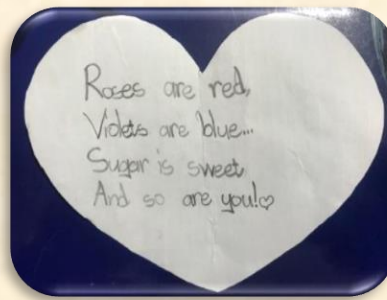 Roses are red,
Violets are blue...
Sugar is sweet
And so are you!♡